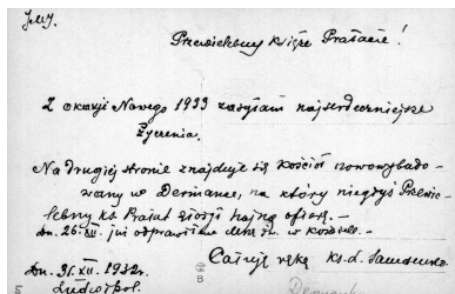 J.M.J.
Przewielebny księże Prałacie!
Z okazji Nowego 1933 zasyłam najserdeczniejsze
życzenia.
Na drugiej stronie znajduje się kościół nowowybudo-
wany w Dermance, na który niegdyś Przewie-
lebny ks. Prałat złożył hojną ofiarę. –
dn. 26.XII. już odprawiłem Mszę św. w kościele. –
Całuję rękę ks. L.
Dn. 31.XII. 1932r.
Ludwipol.
B